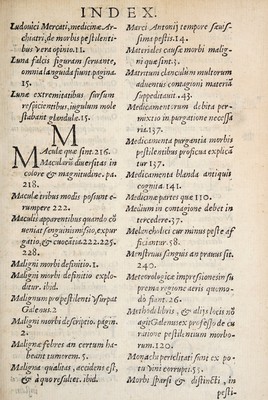 INDEX.
Ludouici Mercati, medicinæ Ar-
chiatri, de morbis pestilenti-
bus vera opinio. 11.
Luna falcis figuram seruante,
omnia languida sunt. pagina.
15.
Luna extremitatibus sursum
respicientibus, iugulum mole
stabant glandulæ. 15.
M
MAculæ quæ sint. 216.
Macularũ diuersitas in
colore & magnitudine. pa.
218.
Maculæ tribus modis possunt e-
rumpere 222.
Maculis apparentibus quando cõ
ueniat sanguinis missio, expur
gatio, & cucurbitæ 222. 225.
228.
Maligni morbi definitio. 1.
Maligni morbi definitio explo-
ditur. ibid.
Malignum pro pestilenti vsurpat
Galenus 2
Maligni morbi descriptio. pagin.
2.
Malignæ febres an certum ha-
beant tumorem. 5.
Maligna qualitas, accidens est,
& à quo resultet. ibid.
Marci Antonij tempore sæuis-
sima pestis. 14.
Materiales causæ morbi malig-
ni quæ sint. 5.
Matritum clanculùm multorum
aduentus contagioni materiã
suppeditauit. 43.
Medicamentorum debita per-
mixtio in purgatione necessa
ria. 137.
Medicamenta purgantia morbis
pestilentibus proficua explicã
tur 137.
Medicamenta blanda antiquis
cognita. 141.
Medicinæ partes quæ 110.
Medium in contagione debet in
tercedere. 37.
Melancholici cur minus peste af
ficiantur. 58.
Menstruus sanguis an prauus sit.
240.
Meteorologicæ impressiones in su
prema regione aeris quomo-
dò fiant. 26.
Methodi libris, & alijs locis nõ
agit Galenus ex professo de cu
ratione pestilentium morbo-
rum. 120.
Monachi periclitati sunt ex po-
tu vini corrupti. 55.
Morbi sparsi & distincti, in
pesti-